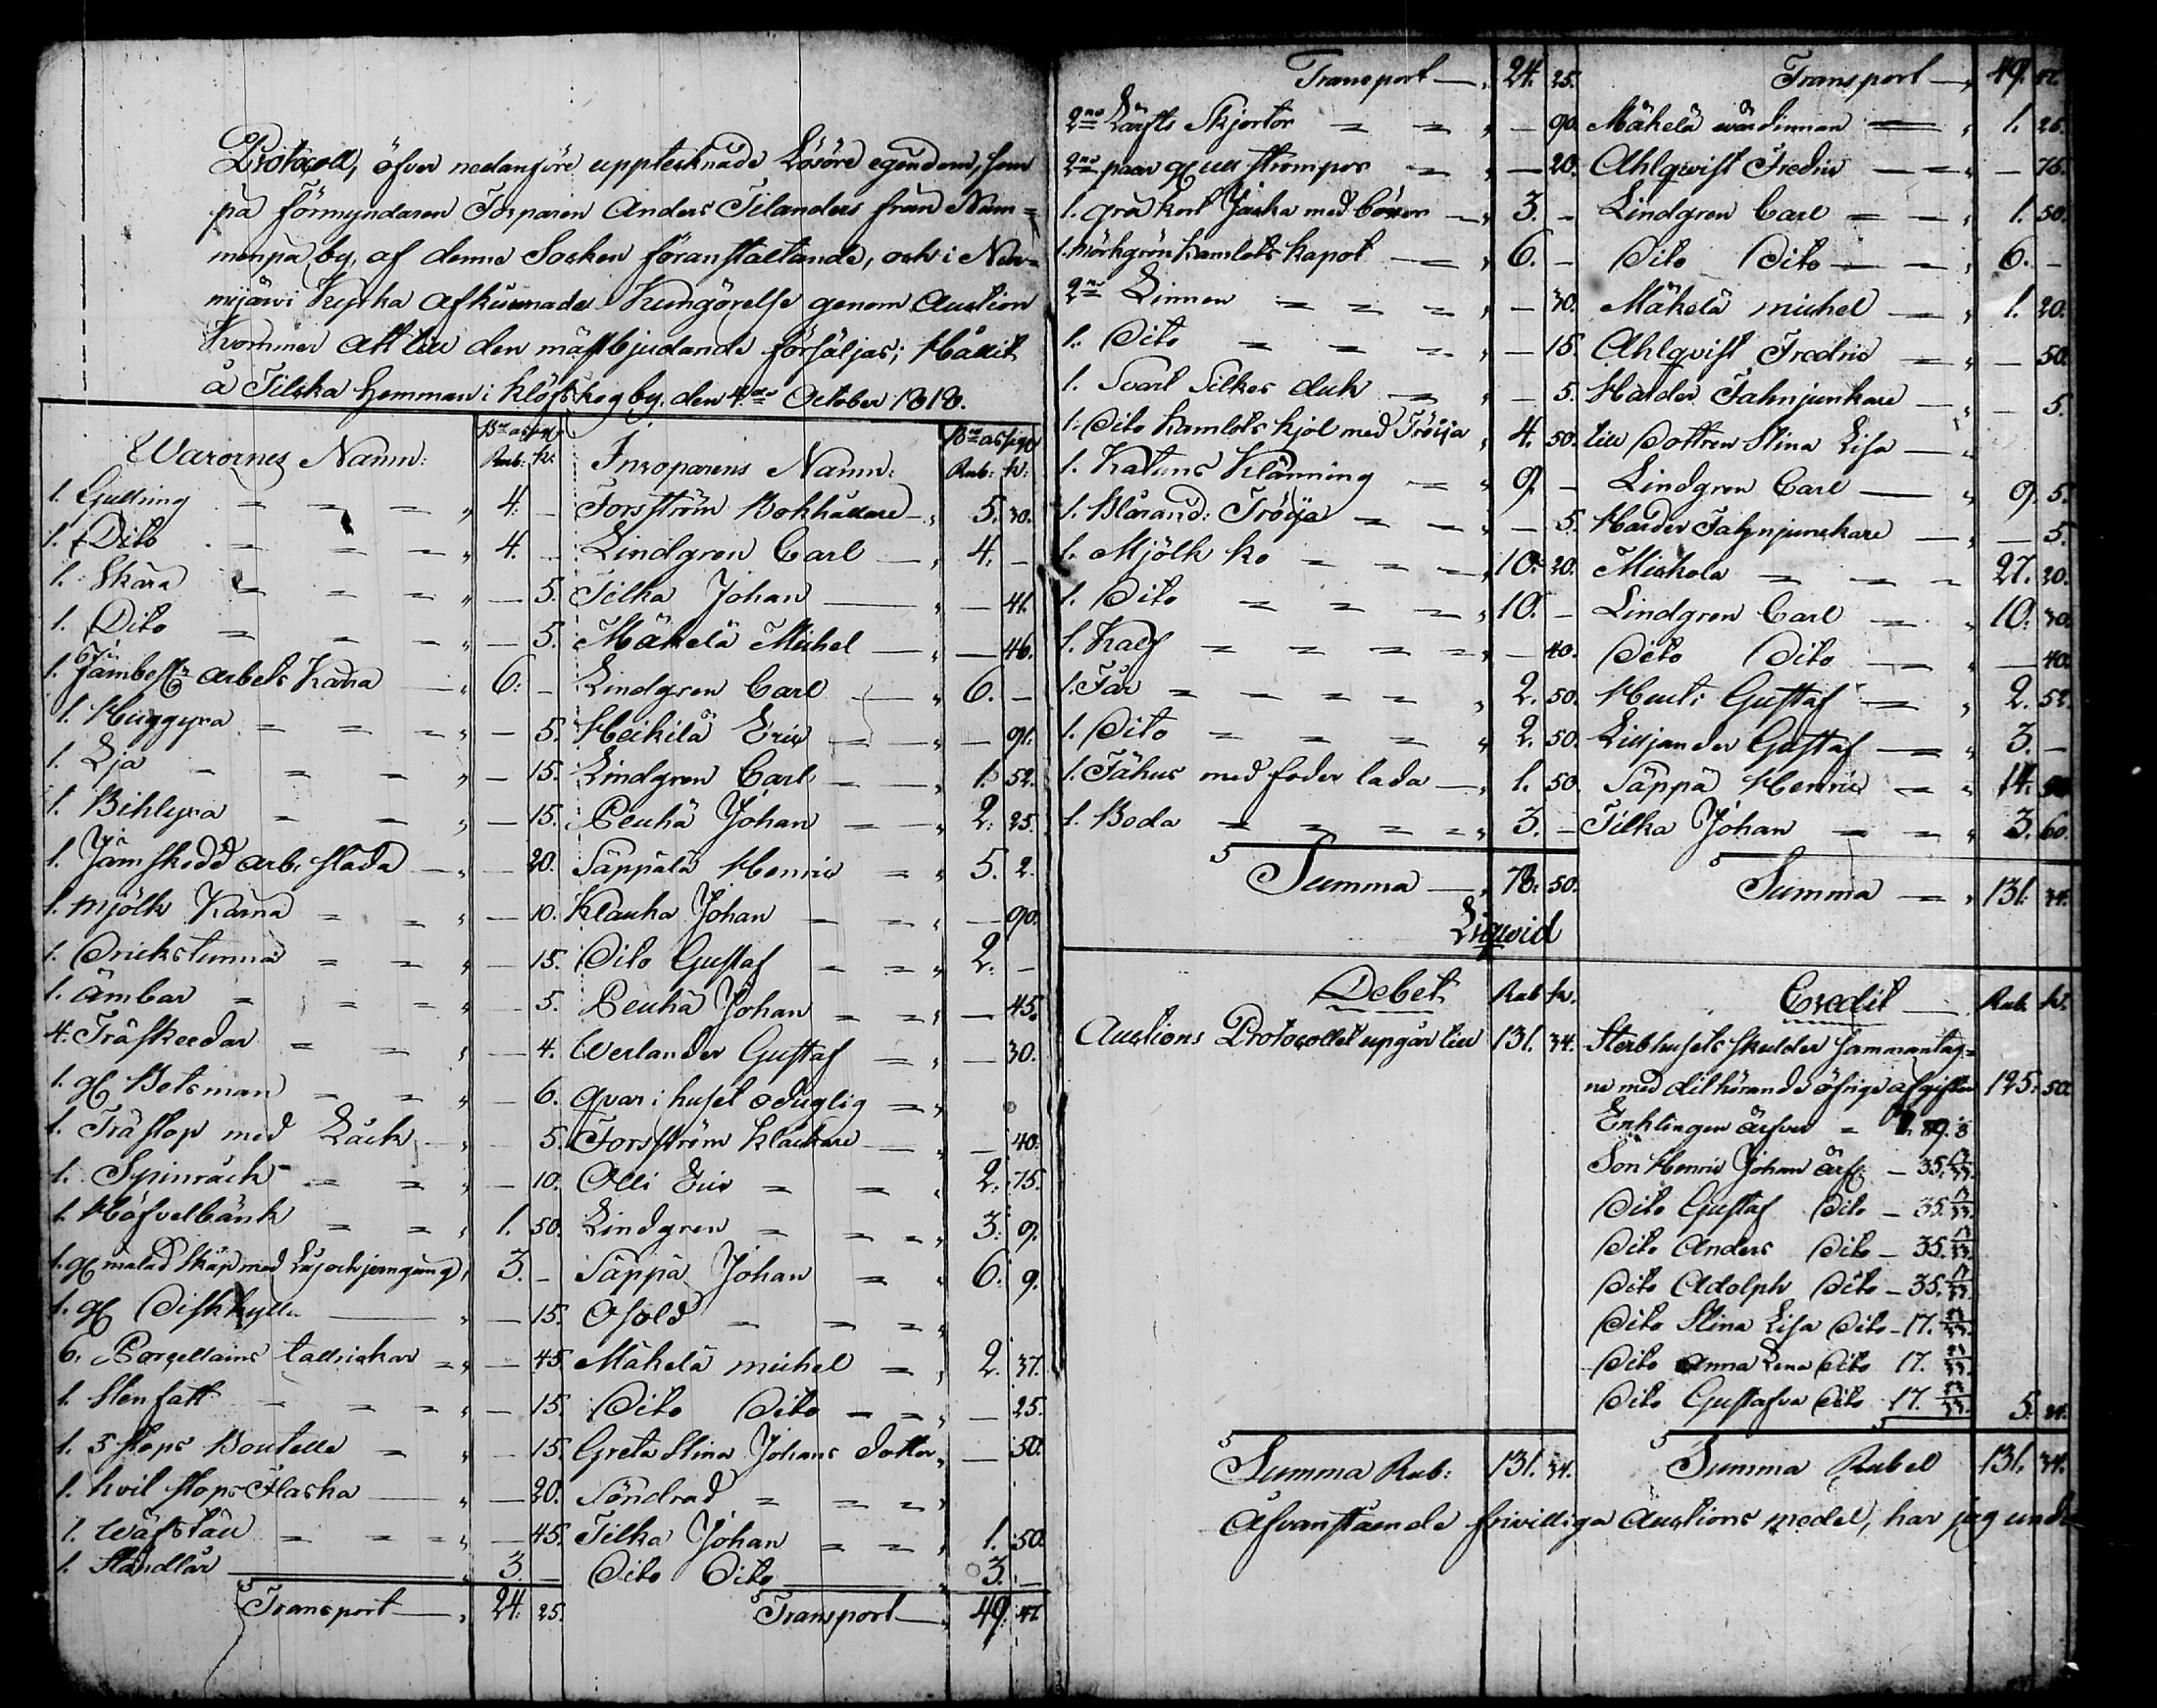 Protocoll, öfver nedanföre upptecknade Lösöre egendom, som
på förmyndaren Torparen Anders Tilanders från Num=
menpä by, af denne Socken föranstaltande, och i Nur=
mijärvi Kyrka afkunnade Kungörelse genom Auction
kommer att till den mästbjudande försäljas; Hållit
å Tilcka Hemman i Klöfskog by, den 4de October 1818.
Warornes Namn: Bco assig: Rub: k: Inroparens Namn: Bco assig: Rub: k:
1. Gullring = = = " 4. – Forsström Bokhållare – " 5. 30.
1. Dito = = = " 4. – Lindgren Carl – " 4. –
1. Skära = = = " – 5. Tilka Johan – " – 41.
1. Dito = = = " – 5. Mäkelä Michel – " – 46.
1. Järnbesl: arbets Kärra – " 6. – Lindgren Carl – " 6. –
1. Huggyxa = = = " – 5. Heikilä Eric – " – 91.
1. Lja = = = " – 15. Lindgren Carl – " 1. 52.
1. Bihlyxa = = " – 15. Peuhä Johan – " 2. 25.
1. Järnskodd arb. släda – " – 20. Säppälä Henric = " 5. 2.
1. Mjölk Kärna = = " – 10. Klauka Johan – " – 90.
1. Drickstunna = = " – 15. Dito Gustaf = " 2. –
1. Ämbar = = = " – 5. Peuhä Johan = " – 45.
4. Träskedar = = " – 4. Werlander Gustaf = " – 30.
1. gl Betsman = = " – 6. qvar i huset oduglig = "
1. Trästop med Låck – " – 5. Forsström Klåckare – " – 40.
1. Spinråck = = " – 10. Olli Eric = = " 2. 75.
1. Höfvelbänk = = " 1. 50. Lindgren = = " 3. 9.
1. gl målad Skåp med Lås och jerngång " 3. – Säppä Johan = " 6. 9.
1. gl Diskhylla – " – 15. Osold = = "
6. Porcellains tallrickar = " – 45. Mäkelä michel = " 2. 37.
1. Stenfatt = = = " – 15. Dito Dito = " – 25.
1. 3 stops Boutelle = " – 15. Greta Stina Johans dotter " – 50.
1. hvit stops Flaska – " – 20. Söndrad = = "
1. Wäfställ = = = " – 45. Tilka Johan = = " 1. 50.
1. Ståndlår – " 3. – Dito Dito – " 3. –
Transport – " 24. 25. Transport – " 49. 47.
Transport – " 24. 25. Transport – " 49. 47.
2ne Lärfts Skjortor = = " – 90. Mäkelä wärdinnan – " 1. 26.
2ne paar gl ull strumpor = " – 20. Ahlqvist Fredric – " – 76.
1. grå kort Jacka med – " 3. – Lindgren Carl = " 1. 50.
1. Mörkgrön Kamlots Kapot – " 6. – Dito Dito – " 6. –
2ne Linnen = = = " – 30. Mäkelä michel – " 1. 20.
1. Dito = = = " – 15. Ahlqvist Fredric = " – 50.
1. Svart Silkes duk = " – 5. Harder Fahnjunkare – " – 5.
1. Dito Kamlots kjol med Tröija " 4. 50. till Dottren Stina Lisa – "
1. Katuns Klänning = " 9. – Lindgren Carl – " 9. 5.
1. Blårand: Tröija = = " – 5. Harder Fahnjunckare – " – 5.
1. Mjölk ko = = = " 10. 20. Mickola = = = 27. 20.
1. Dito = = = " 10. – Lindgren Carl = " 10. 30.
1. Kalf = = = = " – 40. Dito Dito = " – 40.
1. Får = = = = " 2. 50. Gustaf = " 2. 52.
1. Dito = = = " 2. 50. Lilljander Gustaf = " 3. –
1. Fähus med foder lada – " 1. 50. Säppä Henric = " 14. 50.
1. Boda = = = = " 3. – Tilka Johan = = " 3. 60.
Summa – " 78. 50. Summa – " 131. 34.
Liqvid
Debet Rub k. Credit Rub. k.
Auctions Protocollet upgår till 131. 34. Sterbhusets skulder sammantag=
ne med dithörande öfrige afgifter 125. 50.
Enklingen ärfver = 89. 8
Son Henric Johan ärf: – 35. 13/33.
Dito Gustaf Dito – 35. 13/33.
Dito Anders Dito – 35. 13/33.
Dito Adolph Dito – 35. 13/33.
Dito Stina Lisa Dito – 17.
Dito Anna Lena Dito 17.
Dito Gustafva Dito 17. 5. 84.
Summa Rub: 131. 34. Summa Rubel 131. 34.
Ofvanstående frivilliga Auctions medel, har jag unde